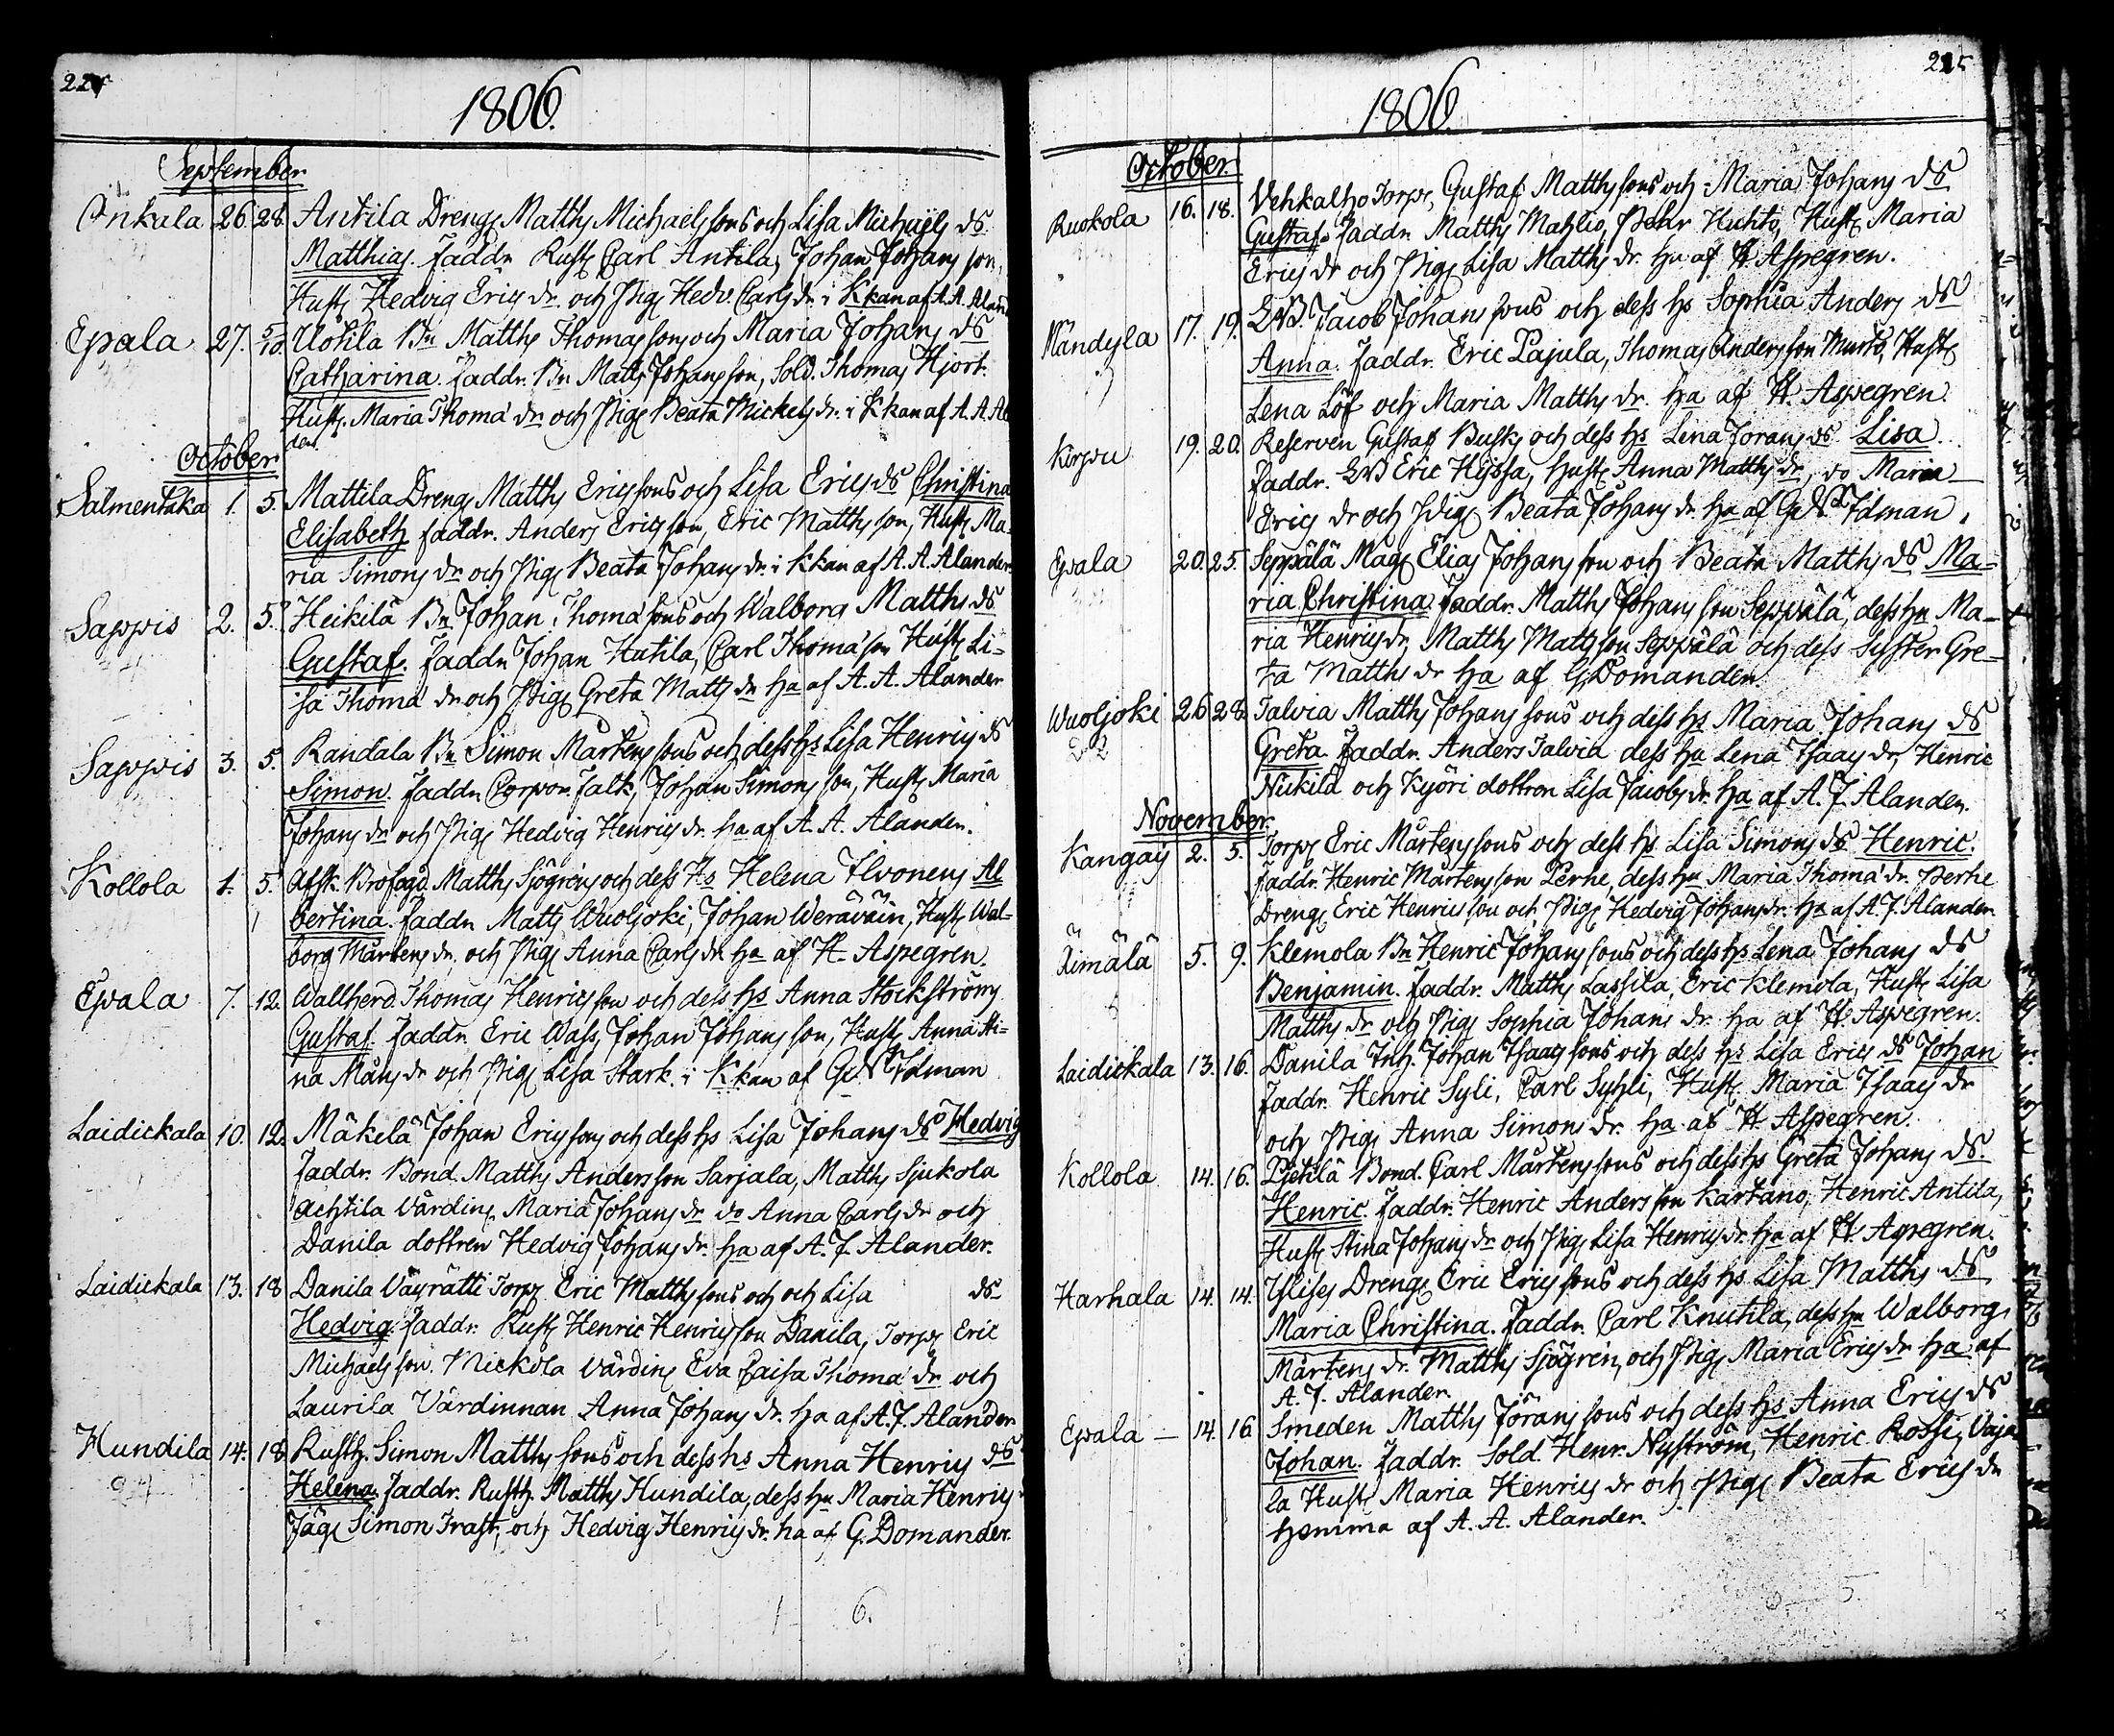 224
1806.
September
Onkala 26. 28. Antila Dreng Matths Michaels sons och Lisa Michaels ds
Matthias. Faddr. Rusth Carl Antila, Johan Johans son,
Hust Hedvig Erics dr och Pig Hedv. Carls dr i Kkan af A. A. Aland
Epala 27. 5/10. Uotila Bn Matths Thomas sons och Maria Johans ds
Catharina. Faddr. Bn Matts Johans son, Sold. Thomas Hjort.
Hust. Maria Thoma dr och Pig Beata Mickels dr. i Kkan af A. A. Al
der.
October
Salmentaka 1. 5. Mattila Dreng Matths Erics sons och Lisa Erics ds Christina
Elisabeth faddr. Anders Erics son, Eric Matths son, Hust Ma-
ria Simons dr och Pig Beata Johans dr i Kkan af A. A. Alander.
Sappis 2. 5. Heikilä Bn Johan Thoma sons och Walborg Matths ds
Gustaf. Faddr Johan Hutila, Carl Thoma son Hust Li-
sa Thoma dr och Pig Greta Matts dr ha af A. A. Alander
Sappis 3. 5. Randala Bn Simon Mårtens sons och dess hs Lisa Henrics ds
Simon. Faddr Corpor. Falk, Johan Simons son, Hust Maria
Johans dr och Pig Hedvig Henrics dr. ha af A. A. Alander.
Kollola 4. 5. Afsk. Brofogd. Matths Sjögrens och dess Hs Helena Ilvonens Al
bertina. Faddr Matts Wuoljoki, Johan Weräväin, Hust Wal-
borg Mårtens dr, och Pig Anna Carls dr ha af H. Aspegren.
Epala 7. 12. Wallherd. Thomas Henrics son och dess hs Anna Stockströms
Gustaf. Faddr. Eric Wass, Johan Johans son, Hust Anna Sti-
na Måns dr och Pig Lisa Stark i Kkan af Idman
Laidickala 10. 12. Mäkelä Johan Erics sons och dess hs Lisa Johans ds Hedvig
Faddr. Bond. Matths Anders son Sarjala, Matths Sjukola
Achtila Värdin Maria Johans dr vo Anna Carls dr och
Danila dottren Hedvig Johans dr. ha af A. J. Alander.
Laidickala 13. 18 Danila Väyrätti Torp Eric Matths sons och och Lisa ds
Hedvig. Faddr. Rust Henric Henrics son Danila, Torp Eric
Michaels son. Nickola Värdin Eva Caisa Thoma dr och
Laurila Värdinnan Anna Johans dr. ha af A. J. Alander
Hundila 14. 18 Rusth. Simon Matths sons och dess hs Anna Henrics ds
Helena. Faddr. Rusth. Matths Hundila, dess hu Maria Henrics
Jäg Simon Trast, och Hedvig Henrics dr. ha af G. Domander.
6.
225
1806.
October.
Ruokola 16. 18. Vehkalho Torp, Gustaf Matths sons och Maria Johans ds
Gustaf. Faddr. Matths Mahlio, Pehr Huhto, Hust Maria
Erics dr och Pig Lisa Matths dr. ha af H. Aspegren.
Mändylä 17. 19. Jacob Johans sons och dess hs Sophia Anders ds
Anna. Faddr. Eric Pajula, Thomas Anders son Murto, Hust
Lena Löf och Maria Matths dr. ha af H. Aspegren.
Korpu 19. 20. Reserven Gustaf Busks och dess hs Lena Jorans ds Lisa.
Faddr. Eric Hyssa, Hust Anna Matths dr, vo Maria
Erics dr och Pig Beata Johans dr ha af Idman.
Epala 20. 25. Seppälä Mag Elias Johans son och Beata Matths ds Ma-
ria Christina Faddr. Matths Johans son Seppälä, dess hu Ma-
ria Henrics dr, Matths Matts son Seppälä och dess Syster Gre-
ta Matths dr ha af G. Domander.
Wuoljoki 26 28. Talvia Matths Johans sons och dess hs Maria Johans ds
Greta. Faddr. Anders Talvia dess hu Lena Isaacs dr, Henric
Nickilä och Kyöri dottren Lisa Jacobs dr. ha af A. J. Alander.
November.
Kangais 2. 5. Torp Eric Mårtens sons och dess hs Lisa Simons ds Henric.
Faddr. Henric Mårtens son Perhe, dess hu Maria Thoma dr. Perhe
Dreng Eric Henrics son och Pig Hedvig Johans dr. ha af A. J. Alander
Rimälä 5. 9. Klemola Bn Henric Johans sons och dess hs Lena Johans ds
Benjamin. Faddr. Matths Lassila, Eric Klemola, Hust Lisa
Matths dr och Pig Sophia Johans dr. ha af H. Aspegren.
Laidickala 13. 16. Danila Inh. Johan Isaacs sons och dess hs Lisa Erics ds Johan
Faddr. Henric Syli, Carl Syhli, Hust Maria Isaacs dr
och Pig Anna Simons dr. ha af H. Aspegren.
Kollola 14. 16. Pietilä Bond. Carl Mårtens sons och dess hs Greta Johans ds.
Henric. Faddr. Henric Anders son Kartano, Henric Antila,
Hust Stina Johans dr och Pig Lisa Henrics dr. ha af H. Aspegren.
Harhala 14. 14. Dreng Eric Erics sons och dess hs Lisa Matths ds
Maria Christina. Faddr. Carl Knutila, dess hu Walborg
Mårtens dr. Matths Sjögren, och Pig Maria Erics dr ha af
A. J. Alander.
Epala 14. 16 Smeden Matths Jörans sons och dess hs Anna Erics ds
Johan. Faddr. Sold. Henr. Nyström, Henric Rossi, Uoja
la Hust Maria Henrics dr och Pig Beata Erics dr
hemma af A. A. Alander.